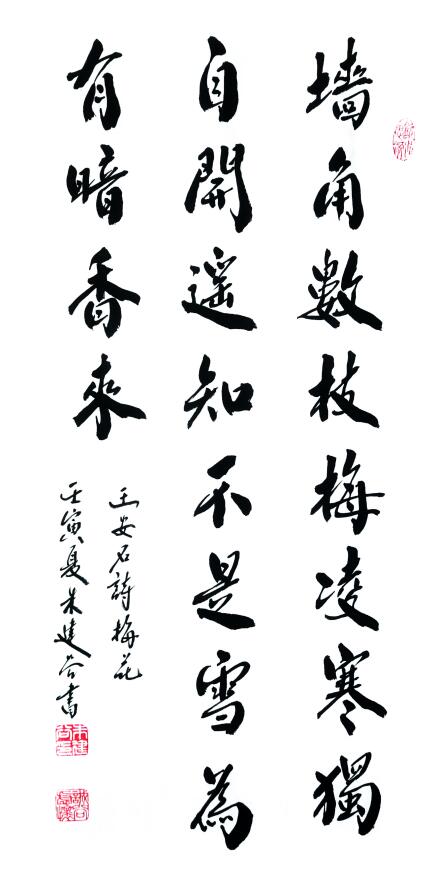 墙角數枝梅凌寒獨
自開遥知不是雪為
有暗香來
王安石詩梅花
壬寅夏朱建谷書